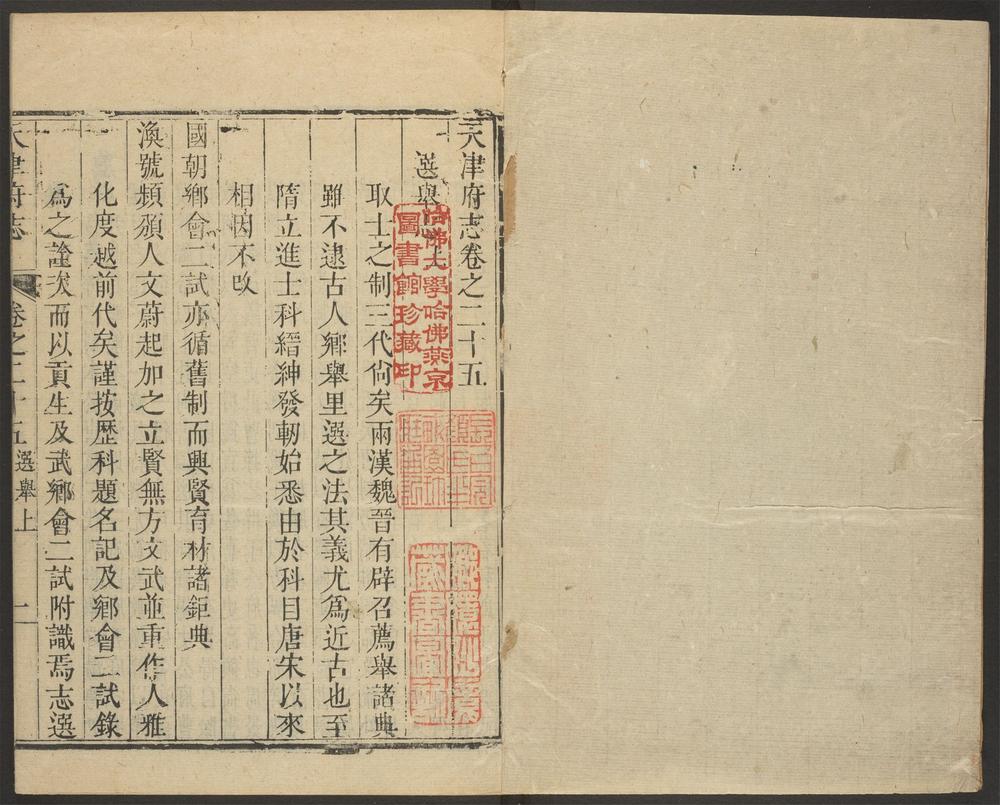 天津府志卷之二十五
選舉志上
取士之制三代尙矣兩漢魏晉有辟召薦舉諸典
雖不逮古人鄉舉里選之法其義尤爲近古也至
隋立進士科縉紳發軔始悉由於科目唐宋以來
相因不改
國朝鄉會二試亦循舊制而興賢育材諸鉅典
渙號頻頒人文蔚起加之立賢無方文武並重作人雅
化度越前代矣謹按歴科題名記及鄉會二試錄
爲之詮次而以貢生及武鄉會二試附識焉志選
天津府志 卷之二十五 選舉上 一
哈佛大學哈佛燕京
圖書館珍藏印